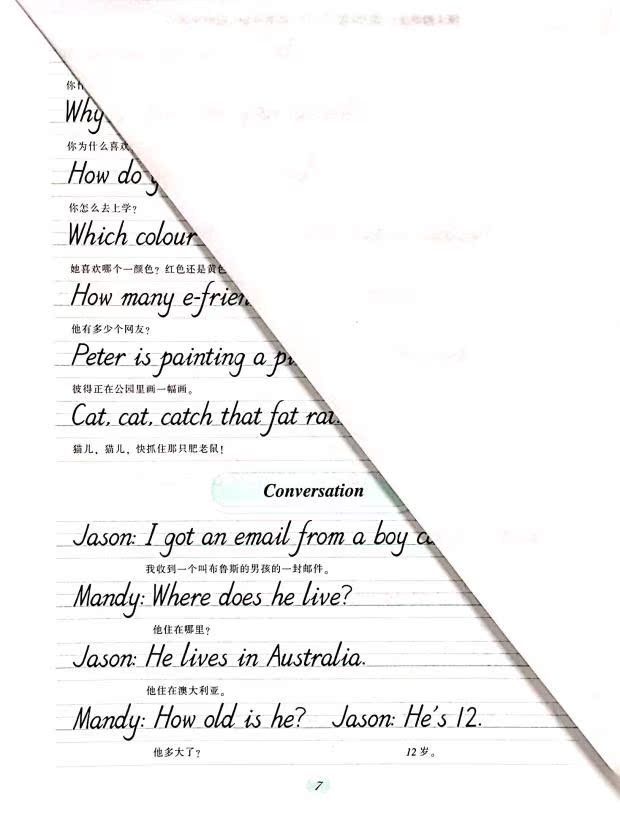 Why
你为什么喜欢
How do
你怎么去上学?
Which colour
她喜欢哪个一颜色? 红色还是黄色
How many
他有多少个网友?
Peter is painting a
彼得正在公园里画一幅画。
Cat, cat, catch that fat
猫儿, 猫儿, 快抓住那只肥老鼠!
Conversation
Jason: I got an email from a boy
我收到一个叫布鲁斯的男孩的一封邮件。
Mandy: Where does he live?
他住在哪里?
Jason: He lives in Australia.
他住在澳大利亚。
Mandy: How old is he? Jason: He's 12.
他多大了? 12 岁。
7